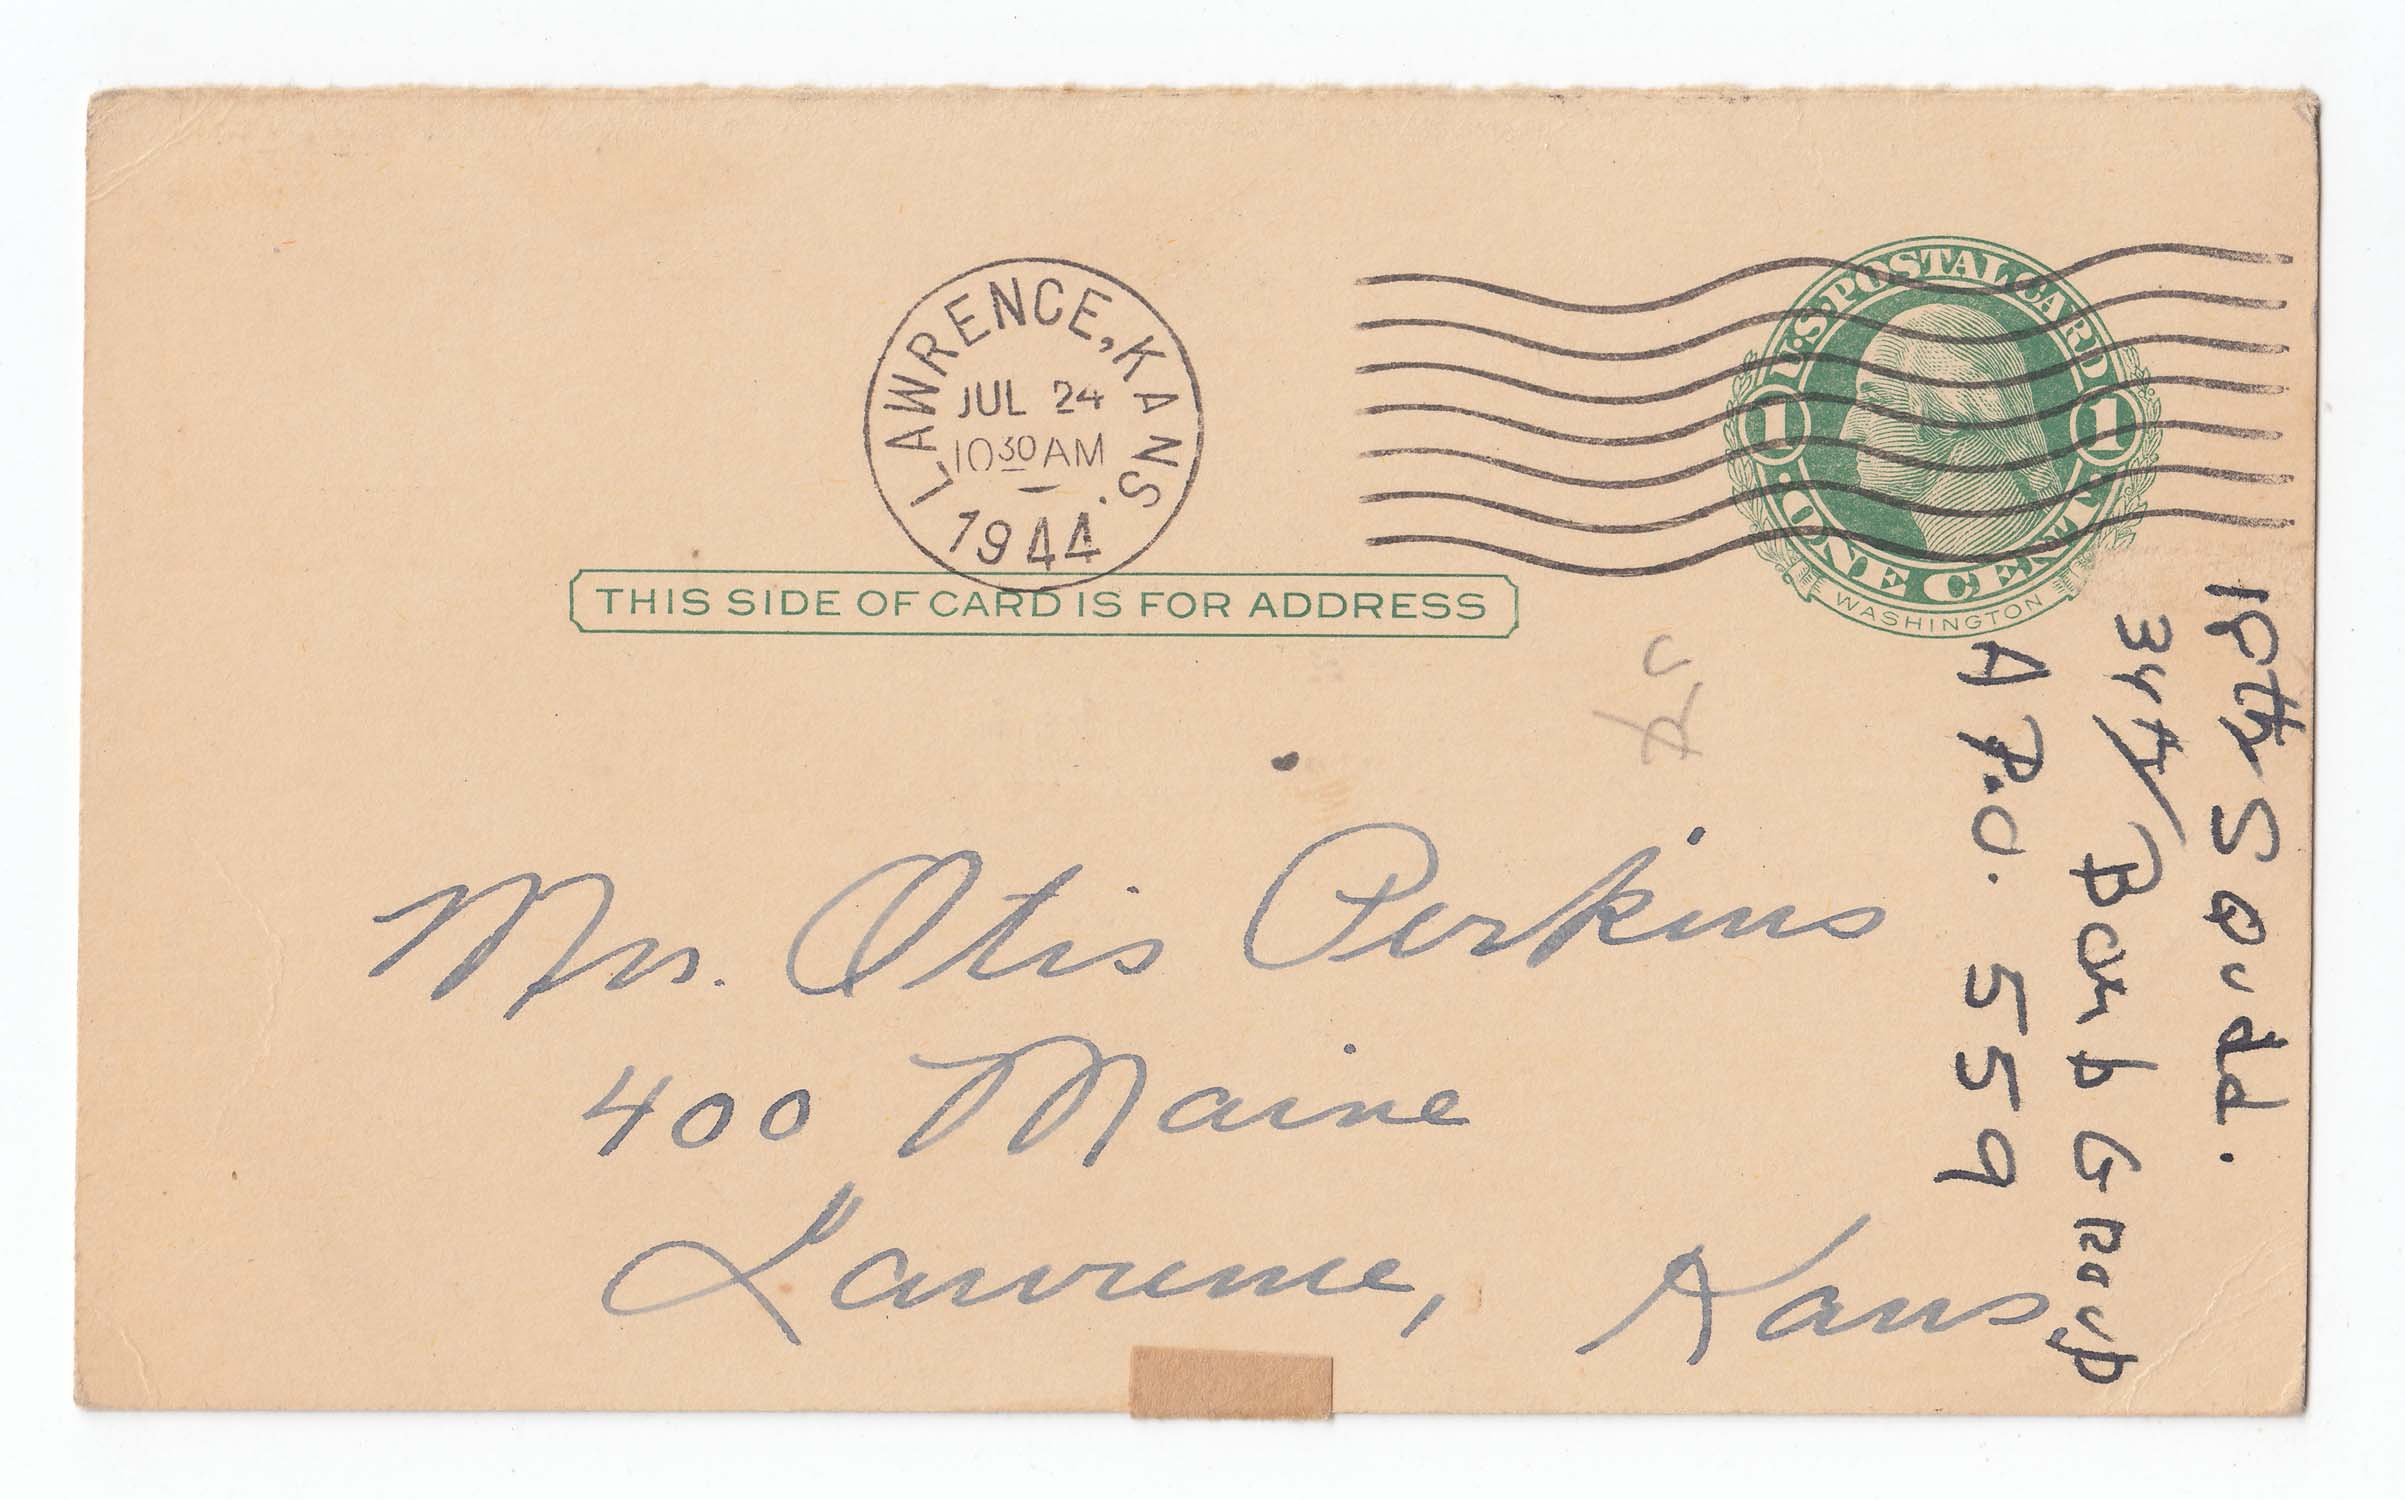 LAWRENCE, KANS.
JUL 24
10 30 AM
1944
U.S. POSTAL CARD
1 1
ONE CENT
WASHINGTON
THIS SIDE OF CARD IS FOR ADDRESS
Mr. Otis Perkins
400 Maine
Lawrence, Kans
18th Squdd.
34th Bomb Group
A P.O. 559